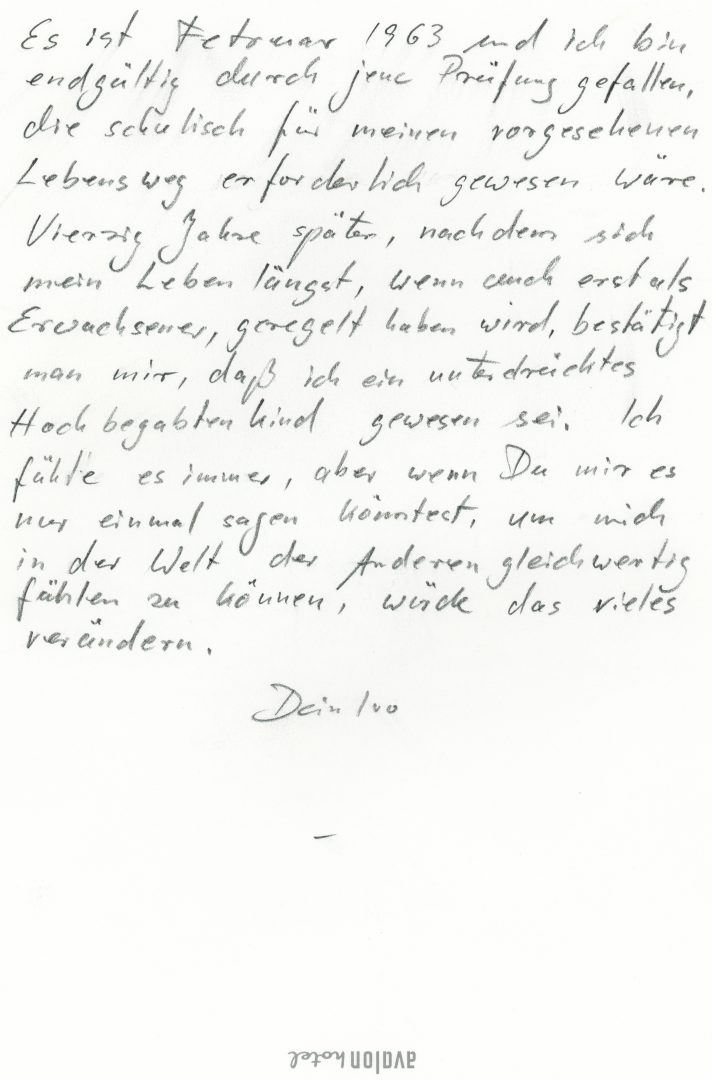 Es ist Februar 1963 und ich bin
endgültig durch jene Prüfung gefallen,
die schulisch für meinen vorgesehenen
Lebensweg erforderlich gewesen wäre.
Vierzig Jahre später, nachdem sich
mein Leben längst, wenn auch erst als
Erwachsener, geregelt haben wird, bestätigt
man mir, daß ich ein unterdrücktes
Hochbegabtenkind gewesen sei. Ich
fühlte es immer, aber wenn Du mir es
nur einmal sagen könntest, um mich
in der Welt der Anderen gleichwertig
fühlen zu können, würde das vieles
verändern.
Dein Ivo
–
avalon hotel